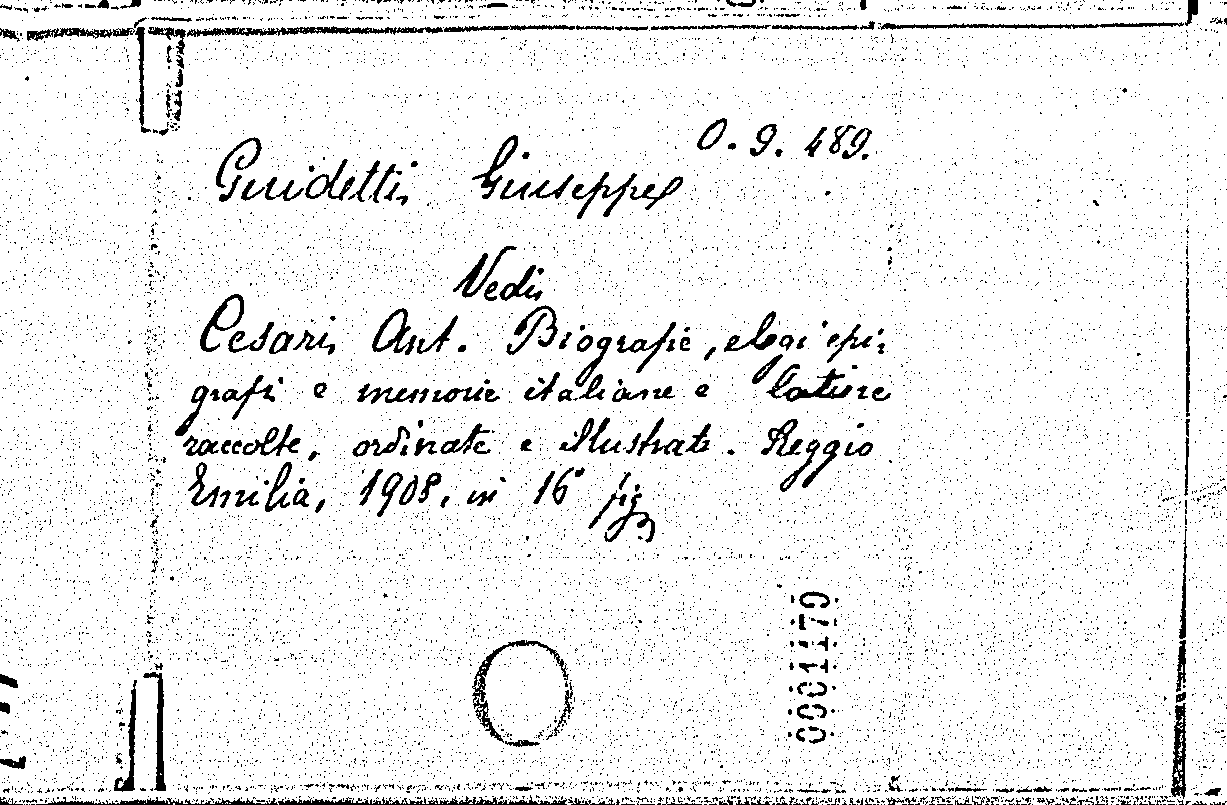 O. 9. 489.
Guidetti Giuseppe
Vedi
Cesari Ant. Biografie, elogi epi-
grafi e memorie italiane e latine
raccolte, ordinate e illustrate. Reggio
Emilia, 1908. in 16° fig
0001179